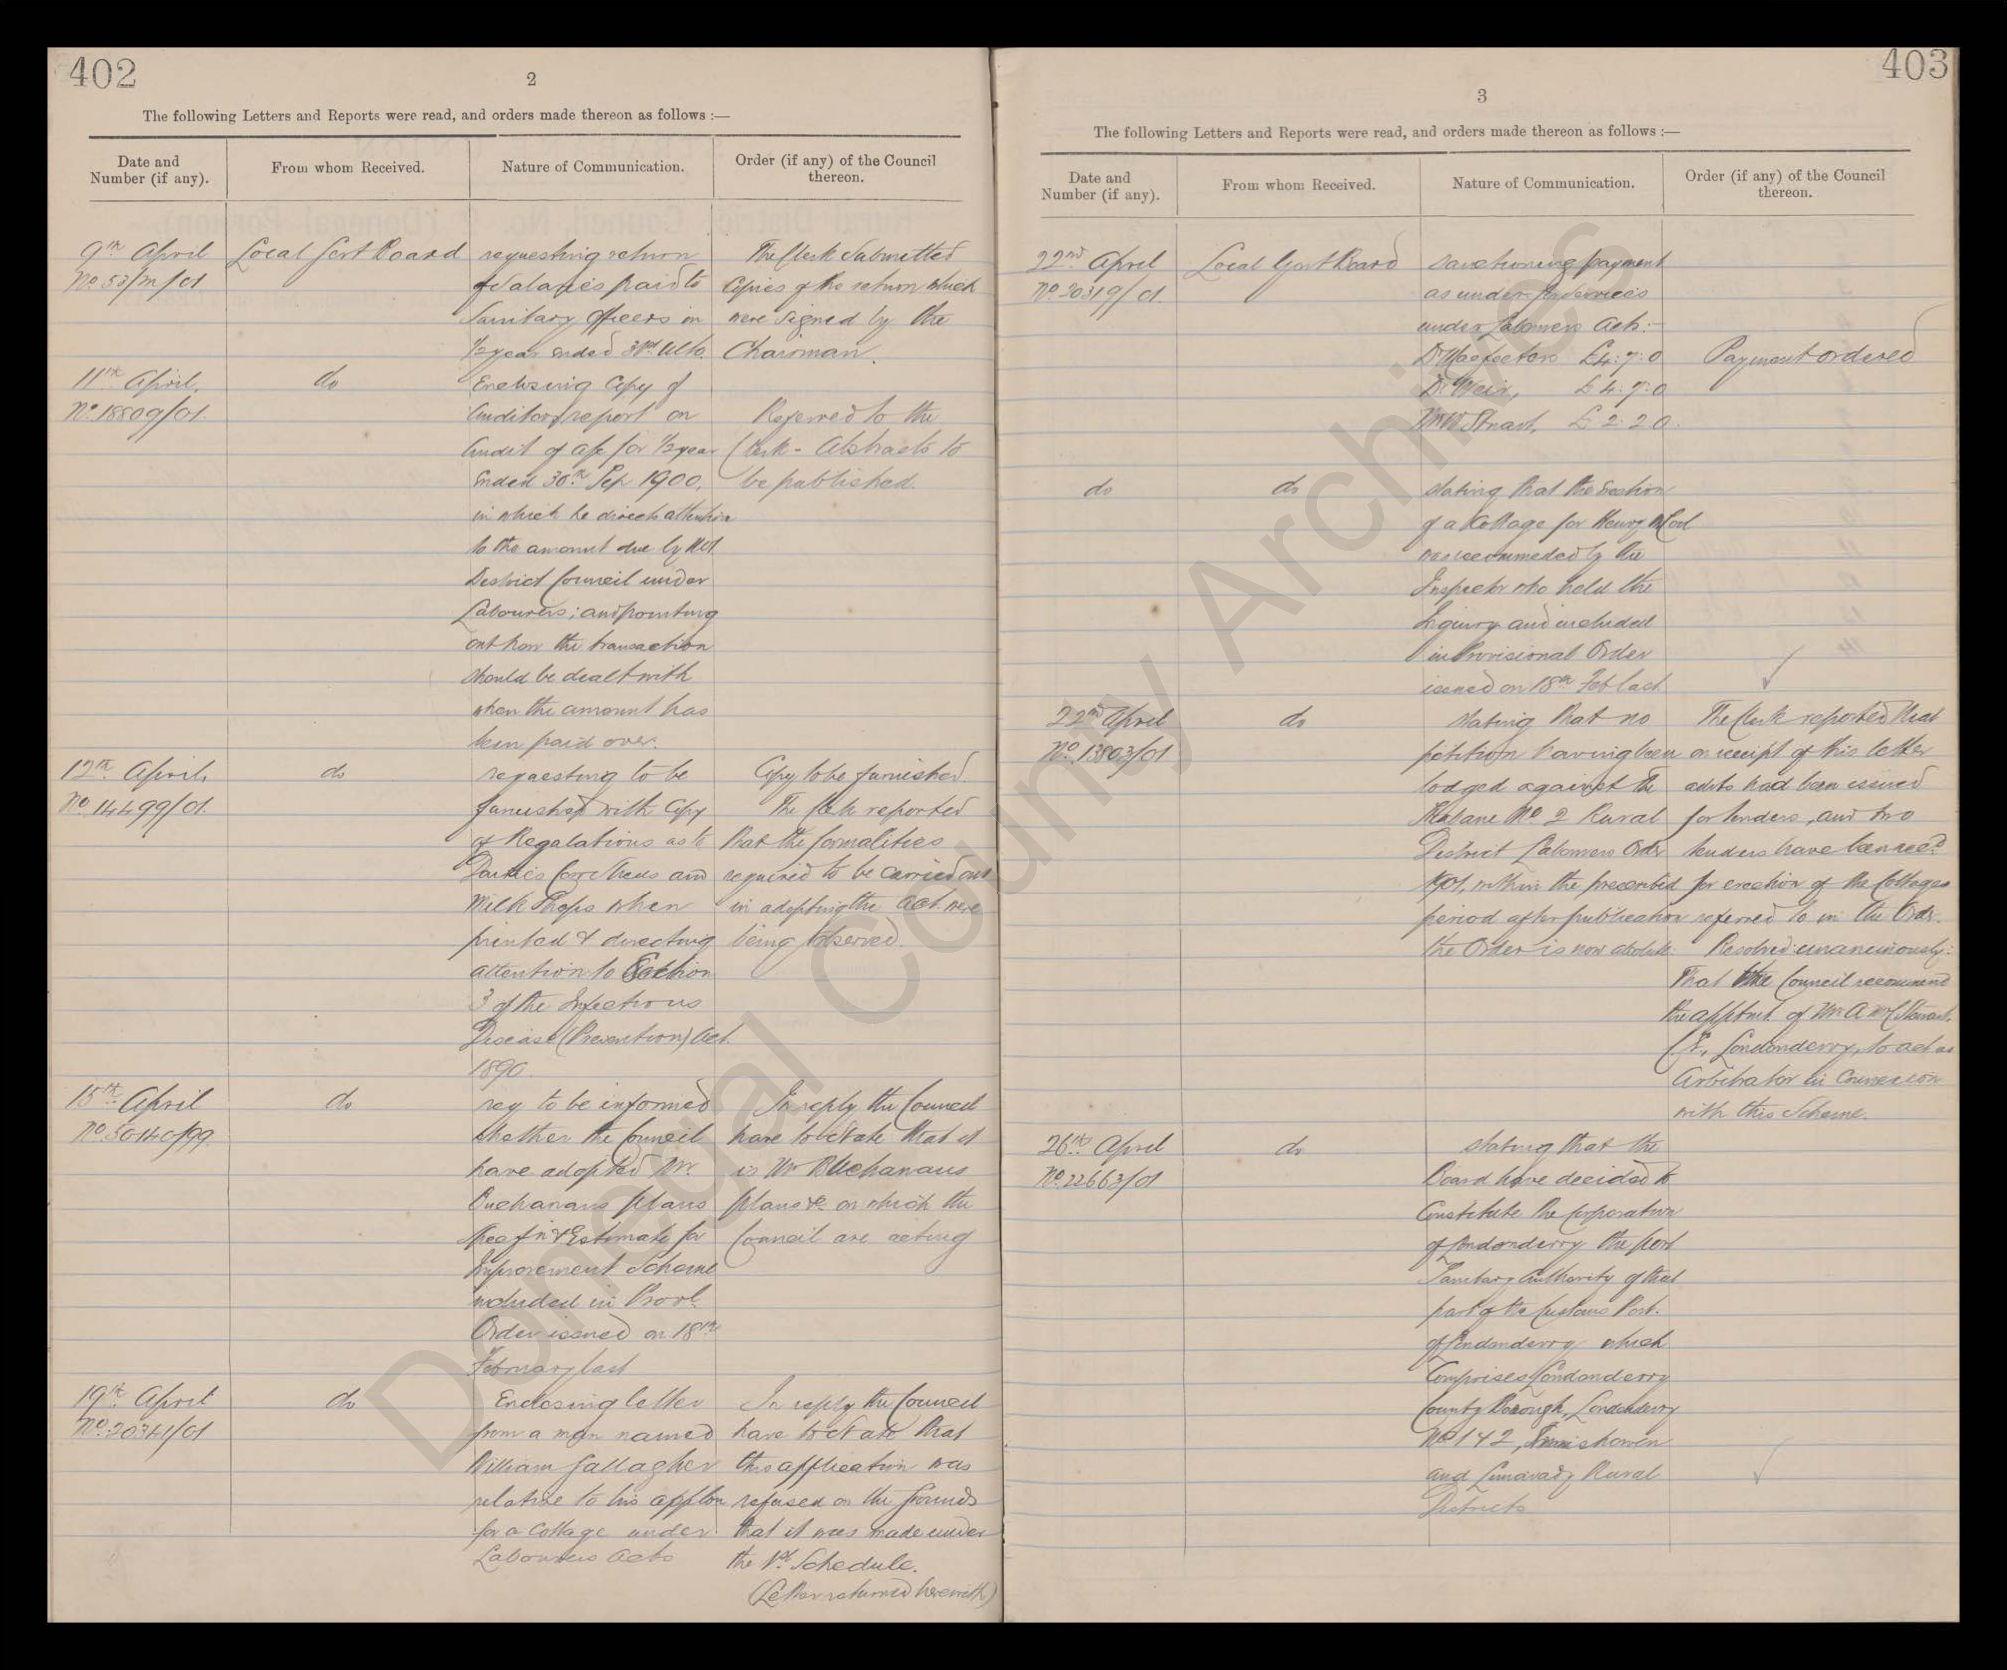 402
2
The following Letters and Reports were read, and orders made thereon as follows :—
Date and Number (if any).
From whom Received.
Nature of Communication.
Order (if any) of the Council thereon.
9th April
No 53/m/01
Local Govt Board
requesting return
of Salaries paid to
Sanitary Officers in
1/2 year ended 31st Ulto.
The Clerk Submitted
Copies of the return which
were signed by the
Chairman.
11th April,
No. 18809/01.
do
Enclosing Copy of
Auditors report on
Audit of a/cs for 1/2 year
Ended 30th Sep 1900,
in which he directs attention
to the amount due by No 1
District Council under
Labourers; and pointing
out how the transaction
should be dealt with
when the amount has
been paid over.
Referred to the
Clerk - Abstracts to
be published.
12th April,
No 14499/01.
do
requesting to be
furnished with Copy
of Regulations as to
Dairies Cow Sheds and
Milk Shops when
printed & directing
attention to Section
3 of the Infectious
Disease (Prevention) Act
1890.
Copy to be furnished.
The Clerk reported
that the formalities
required to be carried out
in adopting the Act were
being observed.
15th April
No. 50140/99.
do
req to be informed
whether the Council
have adopted Mr.
Buchanans plans
Specfn & Estimate for
Improvement Scheme
included in Provl.
Order issued on 18th
February last
In reply the Council
have to state that it
is Mr Buchanans
plans &c on which the
Council are acting
19th April
No. 20341/01
do
Enclosing letter
from a man named
William Gallagher
relative to his appltn
for a Cottage under
Labourers Acts
In reply the Council
have to state that
this application was
refused on the grounds
that it was made under
the 1st Schedule.
(Letter returned herewith)
403
3
The following Letters and Reports were read, and orders made thereon as follows :—
Date and Number (if any).
From whom Received.
Nature of Communication.
Order (if any) of the Council thereon.
22nd April
No. 20319/01.
Local Govt Board
Sanctioning payment
as under for services
under Labourers Acts:-
Dr £4:7:0
Dr Weir, £4:7:0
Stuart, £2:2:0.
Payment ordered
do
do
stating that the erection
of a Cottage for Henry
was recommeded by the
Inspector who held the
Inquiry and included
in Provisional Order
issued on 18th Feb last
22nd April
No. 13803/01
do
stating that no
petition having been
lodged against the
No. 2 Rural
District Labourers Order
1901, within the prescribed
period after publication
the Order is now absolute.
The Clerk reported that
on receipt of this letter
advts had been issued
for tenders, and two
tenders have been recd.
for erection of the Cottages
referred to in the Order.
Resolved unanimously:
That the Council recommend
the apptmt. of Mr A McC Stewart,
C.E., Londonderry, to act as
Arbitrator in Connexion
with this Scheme.
26th April
No. 22663/01
do
stating that the
Board have decided to
Constitute the Corporation
of Londonderry the port
Sanitary Authority of that
part of the Customs Port.
of Londonderry which
Comprises Londonderry
County Borough, Londonderry
No 1 & 2, Innishowen
and Limavady Rural
Districts
Donegal County Archives